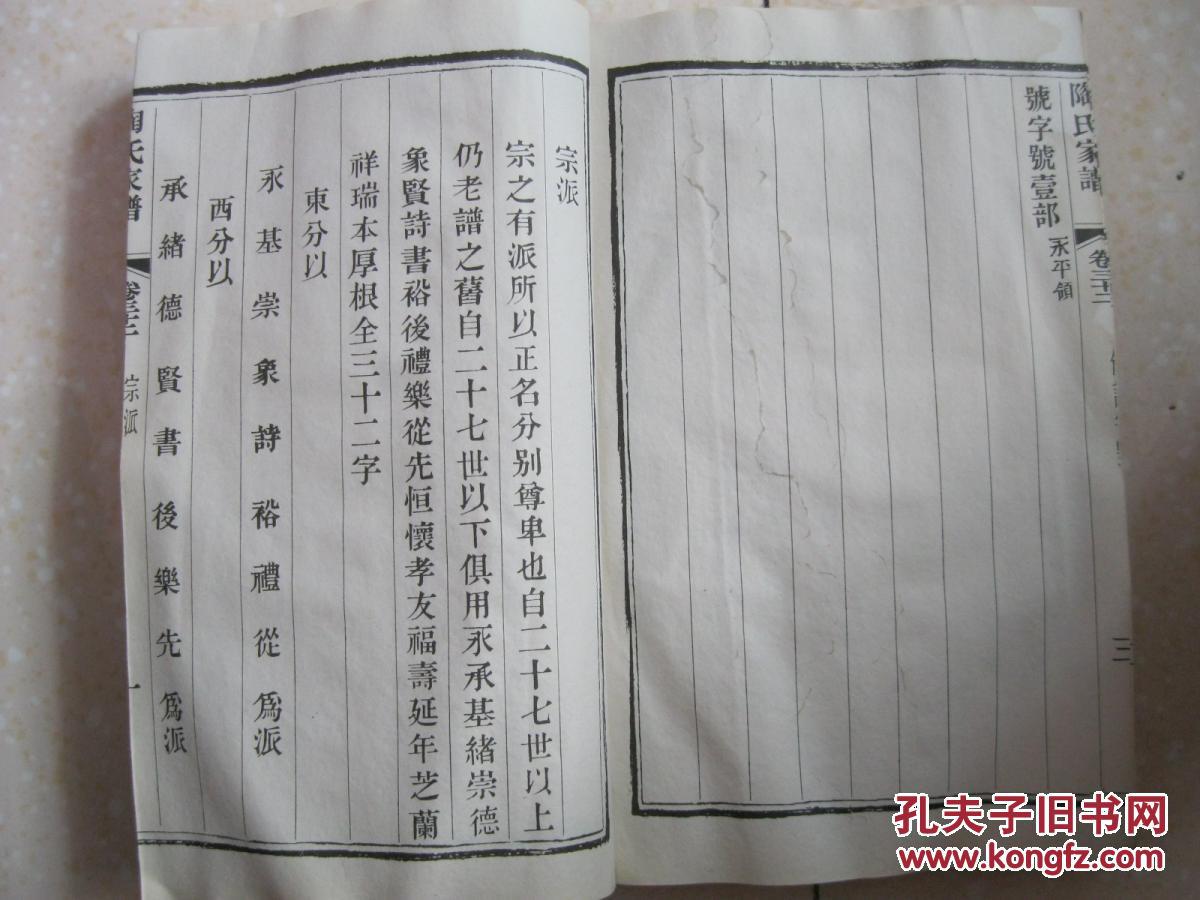 陶氏家譜
卷三十二
三
號字號壹部 永平領
宗派
宗之有派所以正名分别尊卑也自二十七世以上
仍老譜之舊自二十七世以下俱用永承基緒崇德
象賢詩書裕後禮樂從先恒懷孝友福壽延年芝蘭
祥瑞本厚根全三十二字
東分以
永基崇象詩裕禮從為派
西分以
承緒德賢書後樂先為派
陶氏家譜
卷三十二
宗派
一
孔夫子旧书网
www.kongfz.com